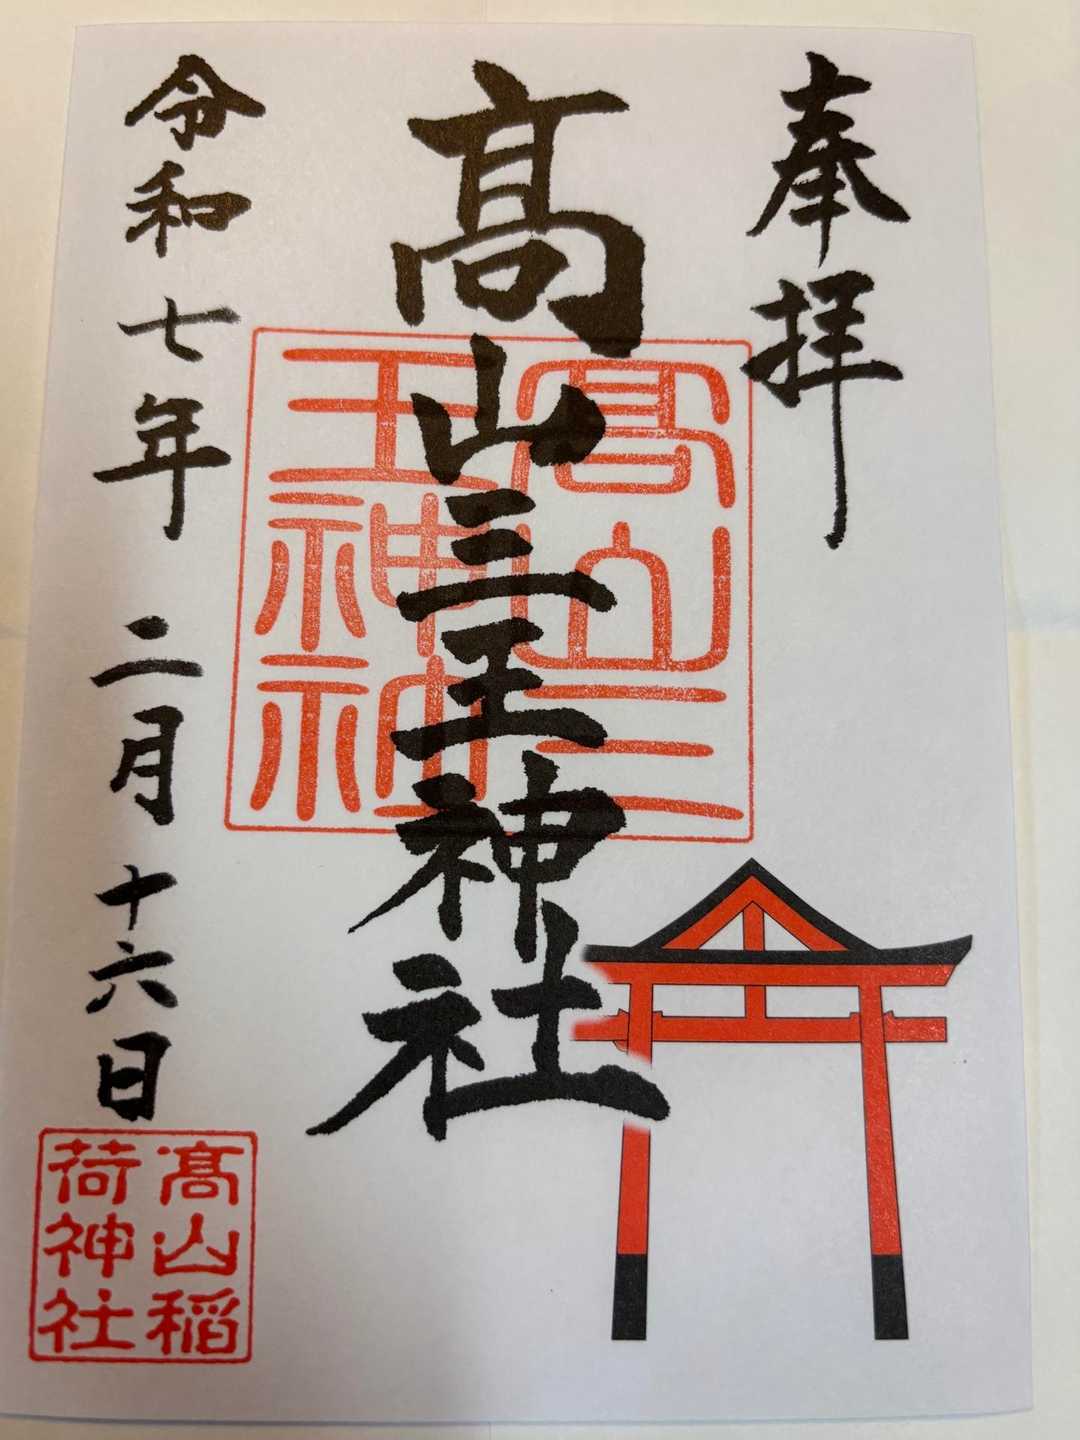 奉拝
髙山三王神社
令和七年 二月十六日
髙山三
王神社
髙山稲
荷神社